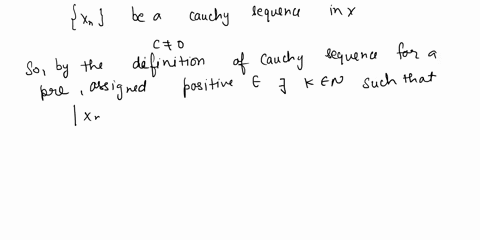 {xₙ} be a cauchy sequence in x
C ≠ 0
So, by the definition of cauchy sequence for a
pre, assigned positive ∈ ∃ K ∈ N such that
| xₙ